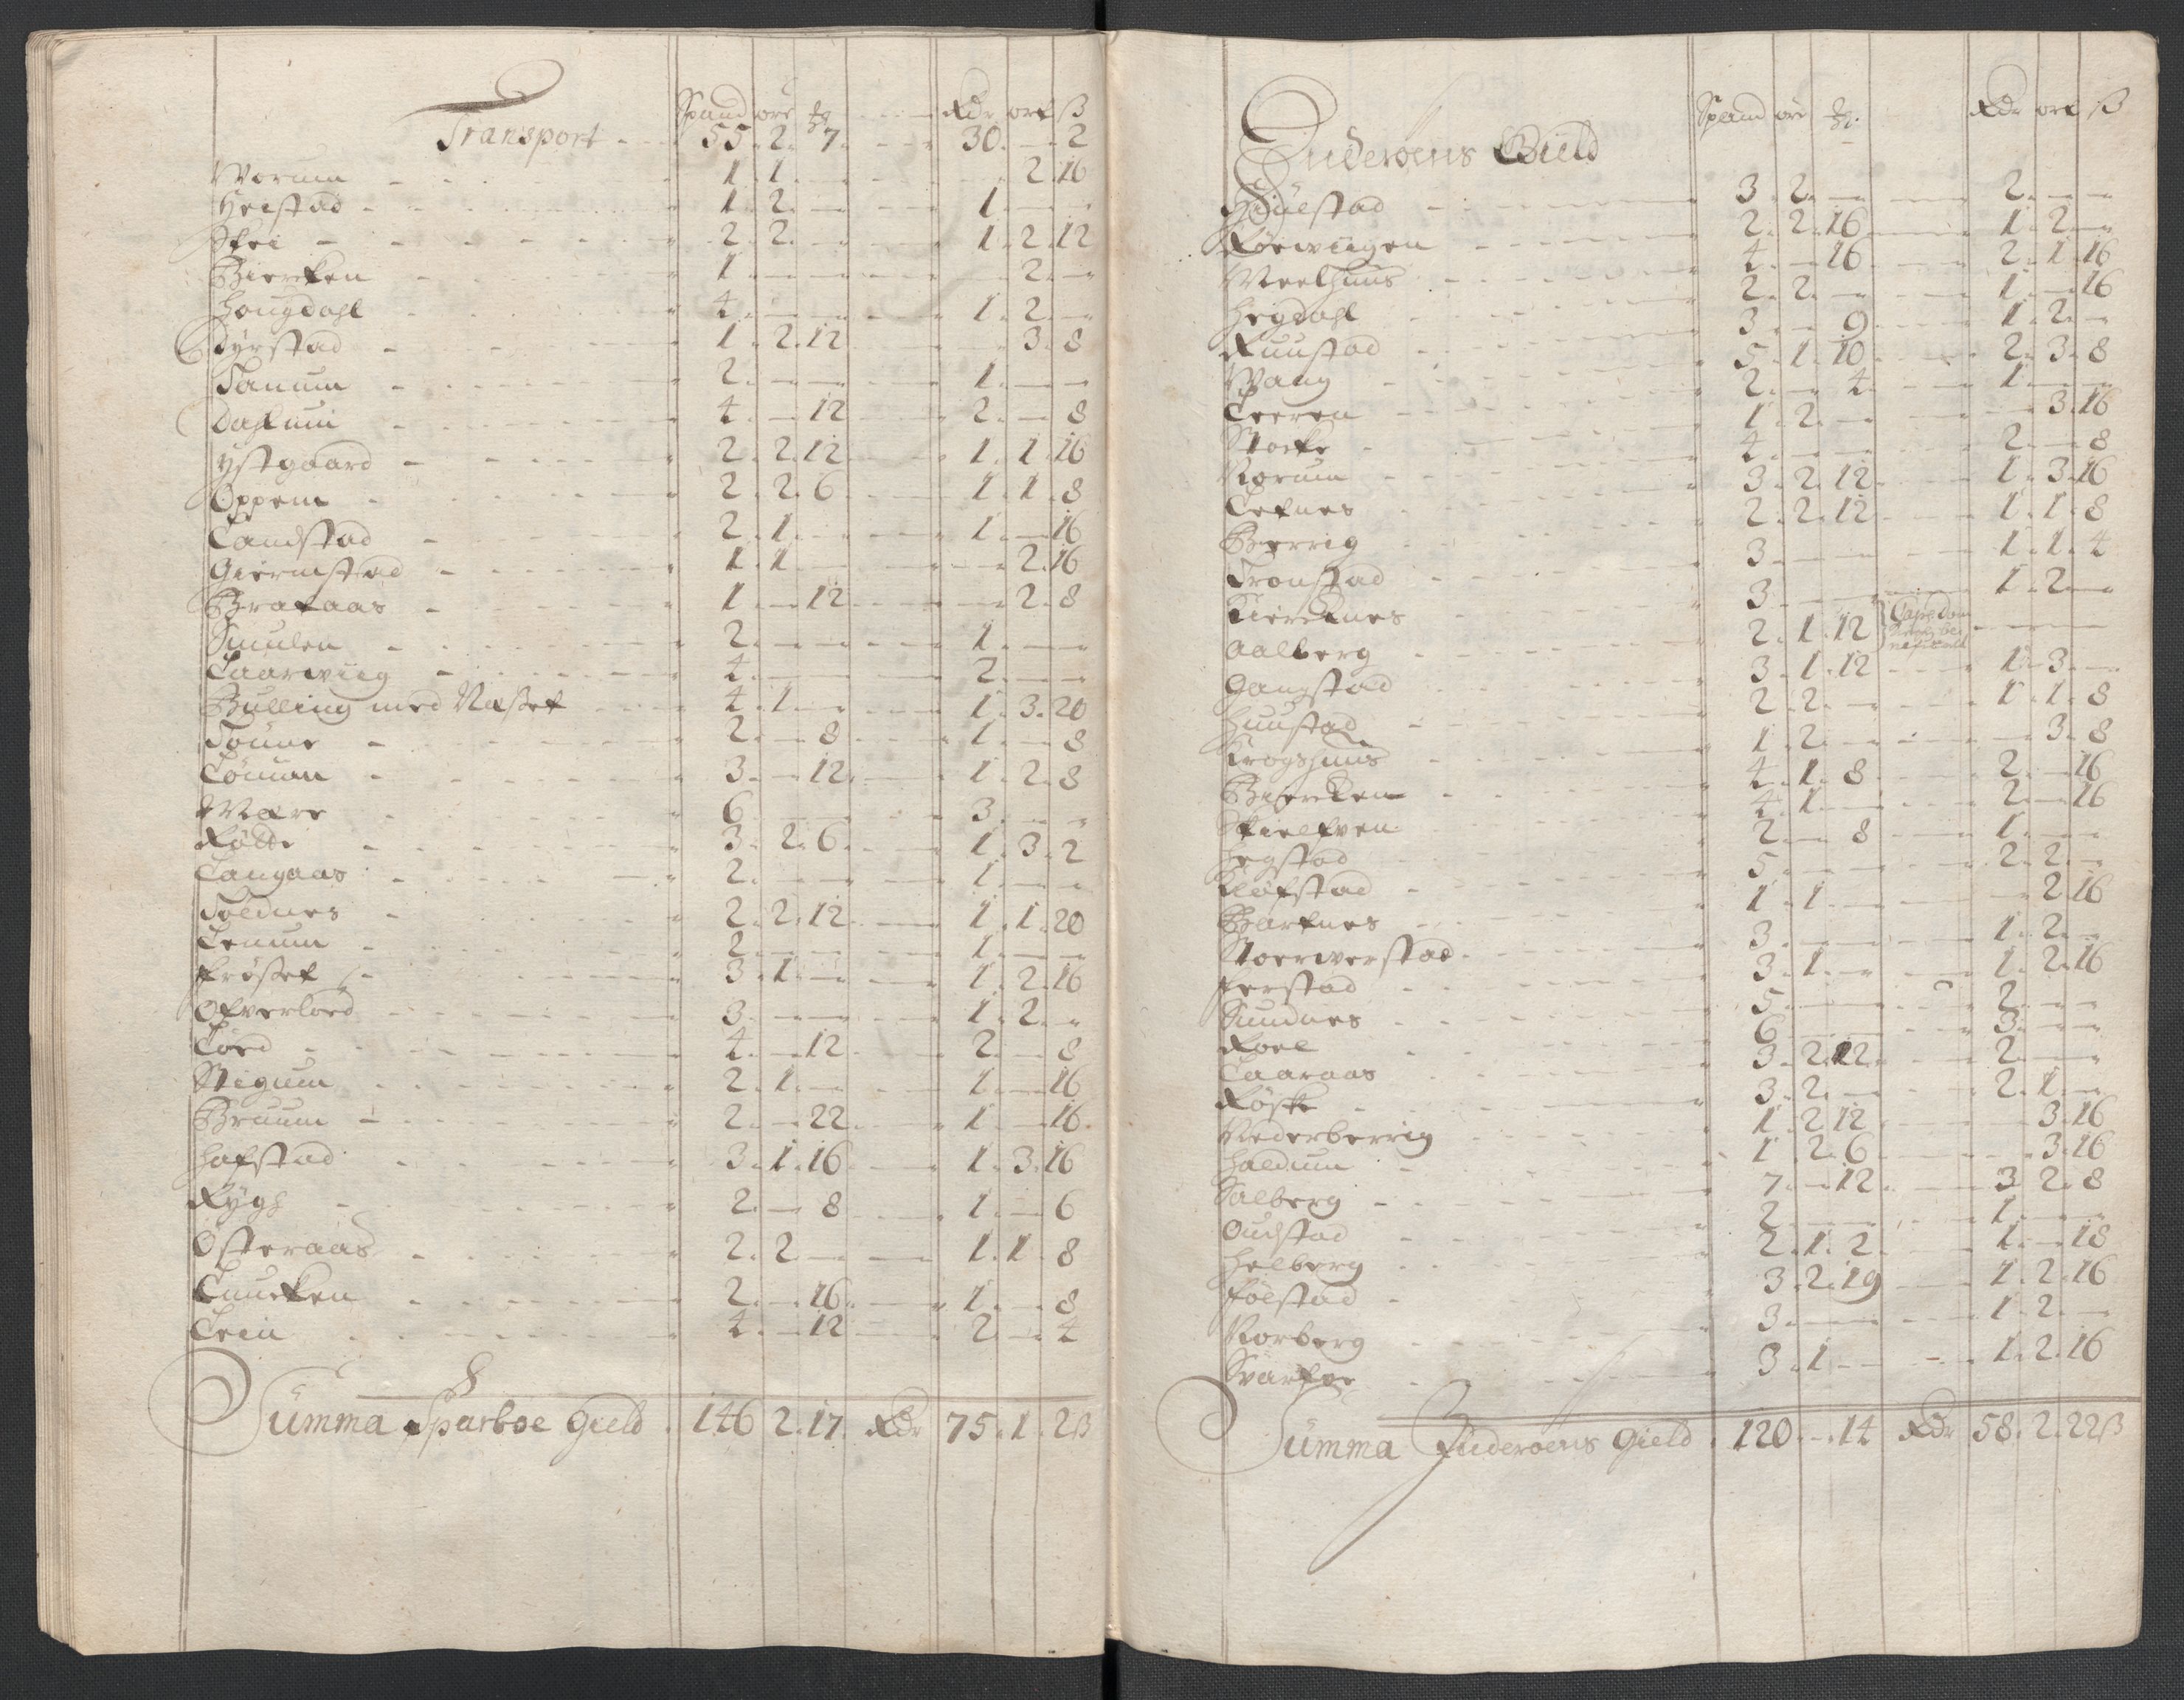 Spand ore ℔ Rdr ort ß
Transport 55. 2. 7. 30. — 2
Worum 1. 1. — 2. 16
Heistad 1. 2. — 1. — —
Skei 2. 2. — 1. 2. 12
Biercken 1. — — 2. —
Hougdahl 4. — — 1. 2. —
Dyrstad 1. 2. 12 3. 8
Tanum 2. — — 1. — —
Dahlum 4. — 12 2. — 8
Ystgaard 2. 2. 12 1. 1. 16
Oppem 2. 2. 6 1. 1. 8
Landstad 2. 1. — 1. — 16
Giermstad 1. 1 — — 2. 16
Brataas 1. — 12 — 2. 8
Smulen 2. — — 1. — —
Laarwiig 4. — — 2. — —
Bulling med Næsset 4. 1. — 1. 3. 20
Toune 2. — 8 1. — 8
Löman 3. — 12. 1. 2. 8
Mære 6. — — 3. — —
Rödde 3. 2. 6. 1. 3. 2
Langaas 2. — — 1. — —
Foldnes 2. 2. 12. 1. 1. 20
Lenum 2. — — 1. — —
Fröset 3. 1. — 1. 2. 16
Ofverlord 3. — — 1. 2. —
Lörd 4. — 12 2. — 8
Stigum 2. 1. — 1. — 16
Bruum 2. — 22 1. — 16
Hafstad 3. 1. 16 1. 3. 16
Rygh 2. — 8 1. — 6
Österaas 2. 2 — 1. 1. 8
Lnucken 2. — 16. 1. — 8
Lein 4. — 12 2. — 4
Summa Sparboe Gield . 146 2. 17. Rdr 75. 1. 2ß
Spand ore ℔ Rdr ort ß
Inderoens Gield
Hiulstad 3. 2. — 2. — —
Rörwiigen 2. 2. 16 1. 2. —
Meelhuus 4. — 16 2. 1. 16
Hegdahl 2. 2. — 1. — 16
Ruustad 3. — 9. 1. 2. —
Wang 5. 1. 10 2. 3. 8
Leeren 2. — 4. 1. — —
Stocke 1. 2. — — 3. 16
Norum 4. — — 2. — 8
Letnes 3. 2. 12. 1. 3. 16
Berrig 2. 2. 12 1. 1. 8
Tronstad 3. — — 1. 1. 4
Kierknes 3. — — 1. 2. —
Aalberg 2. 1. 12 — — —
Gangstad 3. 1. 12 1. 3. —
Huustad 2. 2. — 1. 1. 8
Krogshuus 1. 2. — — 3. 8
Biercken 4. 1. 8 2. — 16
Skielfven 4. 1. — 2. — 16
Hegstad 2. — 8 1. — —
Kiöfstad 5. — — 2. 2. —
Bartnes 1. 1. — — 2. 16
Stoerwerstad 3. — — 1. 2. —
Ferstad 3. 1. — 1. 2. 16
Sundnes 5. — — 2. — —
Roel 6. — — 3. — —
Laaraas 3. 2. 12. 2. — —
Röske 3. 2. — 2. 1. —
Nederberrig 1. 2 12 3. 16
Haldum 1. 2. 6 3. 16
Salberg 7. — 12. 3. 2. 8
Oudstad 2. — — 1. — —
Helberg 2. 1. 2. 1. — 18
Folstad 3. 2. 19 1. 2. 16
Norberg 3. — — 1. 2. —
Svarfve 3. 1. — 1. 2. 16
Summa Inderoens Gield . 120 — . 14 Rdr 58. 2. 22ß